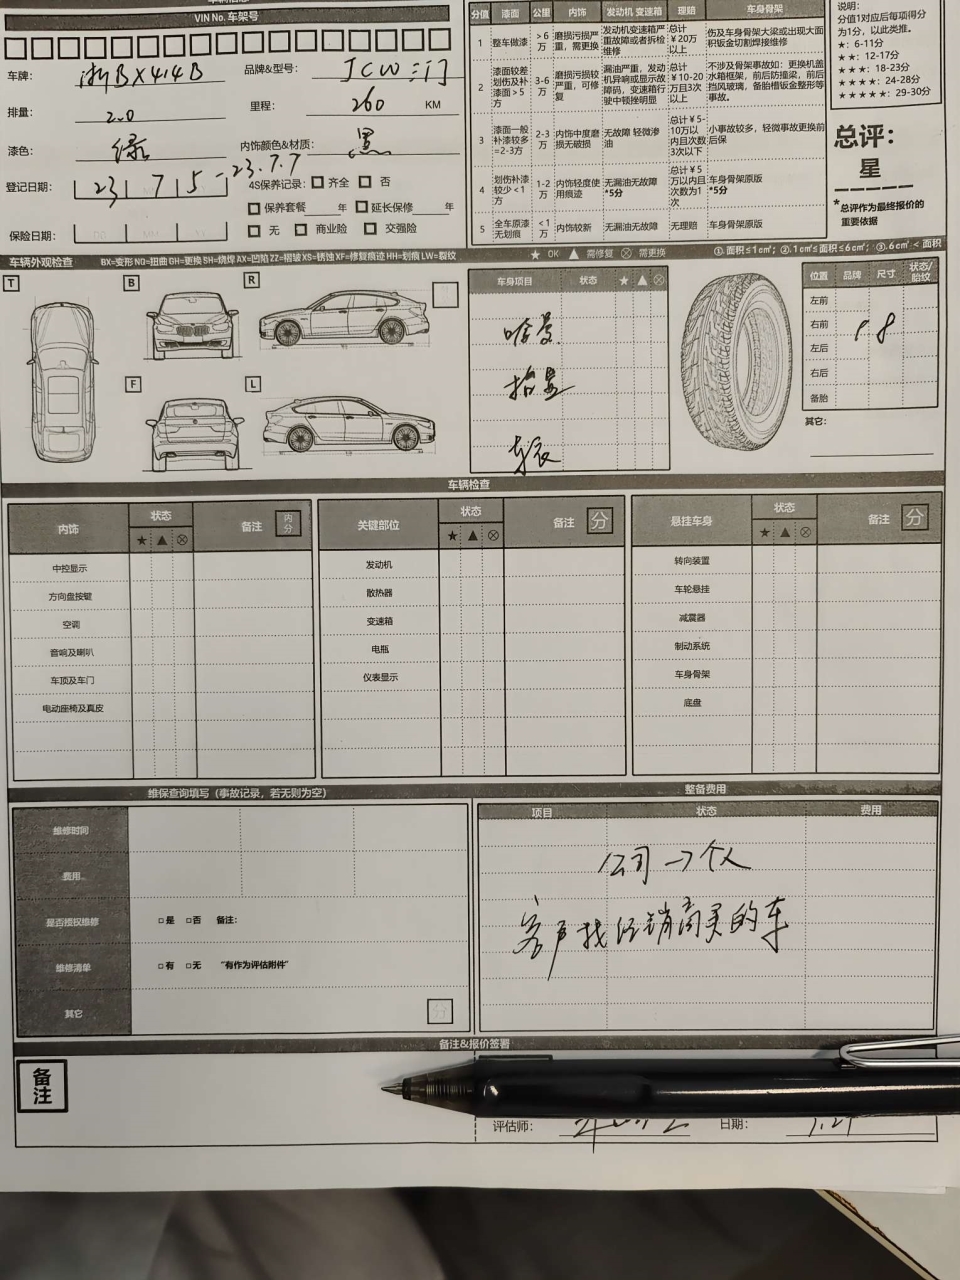 VIN No. 车架号
车牌： 浙BX414B 品牌&型号： JCW 三门
排量： 2.0 里程： 260 KM
漆色： 绿 内饰颜色&材质： 黑
登记日期： 23 7 5 -23.7.7
4S保养记录： 齐全 否
保养套餐 年 延长保修 年
保险日期： 无 商业险 交强险
分值 漆面 公里 内饰 发动机 变速箱 理赔 车身骨架
1 整车做漆 >6万 磨损污损严重，需更换 发动机变速箱严重故障或者拆检维修 总计￥20万以上 伤及车身骨架大梁或出现大面积钣金切割焊接维修
2 漆面较差划伤及补漆面>5方 3-6万 磨损污损较严重，可修复 漏油严重，发动机异响或显示故障码，变速箱行驶中顿挫明显 总计￥10-20万且3次以上 不涉及骨架事故如：更换机盖水箱框架，前后防撞梁，前后挡风玻璃，备胎槽钣金整形等事故。
3 漆面一般补漆较多=2-3方 2-3万 内饰中度磨损无破损 无故障 轻微渗油 总计￥5-10万以内且次数3次以下 小事故较多，轻微事故更换前后保
4 划伤补漆较少<1方 1-2万 内饰轻度使用痕迹 无漏油无故障 *5分 总计￥5万以内且次数为1次 车身骨架原版 *5分
5 全车原漆无划痕 <1万 内饰较新 无漏油无故障 无理赔 车身骨架原版
说明：
分值1对应后每项得分为1分，以此类推。
★：6-11分
★★：12-17分
★★★：18-23分
★★★★：24-28分
★★★★★：29-30分
总评：
星
*总评作为最终报价的重要依据
车辆外观检查 BX=变形 NQ=扭曲 GH=更换 SH=烧焊 AX=凹陷 ZZ=褶皱 XS=锈蚀 XF=修复痕迹 HH=划痕 LW=裂纹
★ OK ▲ 需修复 ⊗ 需更换 ①.面积≤1㎡；②.1㎡≤面积≤6㎡；③.6㎡<面积
T B R
F L
车身项目 状态 ★ ▲ ⊗
位置 品牌 尺寸 状态/胎纹
左前
右前 18
左后
右后
备胎
其它：
车辆检查
内饰 状态 备注 内分
★ ▲ ⊗
中控显示
方向盘按键
空调
音响及喇叭
车顶及车门
电动座椅及真皮
关键部位 状态 备注 分
★ ▲ ⊗
发动机
散热器
变速箱
电瓶
仪表显示
悬挂车身 状态 备注 分
★ ▲ ⊗
转向装置
车轮悬挂
减震器
制动系统
车身骨架
底盘
维保查询填写（事故记录，若无则为空）
维修时间
费用
是否授权维修 □是 □否 备注：
维修清单 □有 □无 “有作为评估附件”
其它 分
整备费用
项目 状态 费用
公司→个人
客户找经销商买的车
备注&报价签署
备注
评估师： 日期：